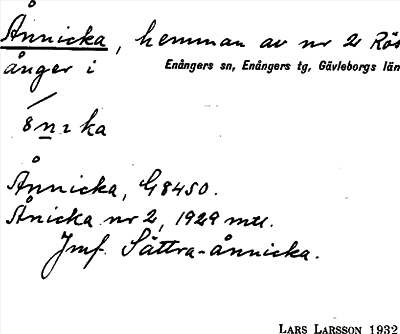 Ånnicka, hemman av nr 2 Rös
ånger i Enångers sn, Enångers tg, Gävleborgs län
ka
Ånnicka, G 8450.
Ånicka nr 2, 1929 mtl.
Jmf. Sättra-ånnicka.
LARS LARSSON 1932